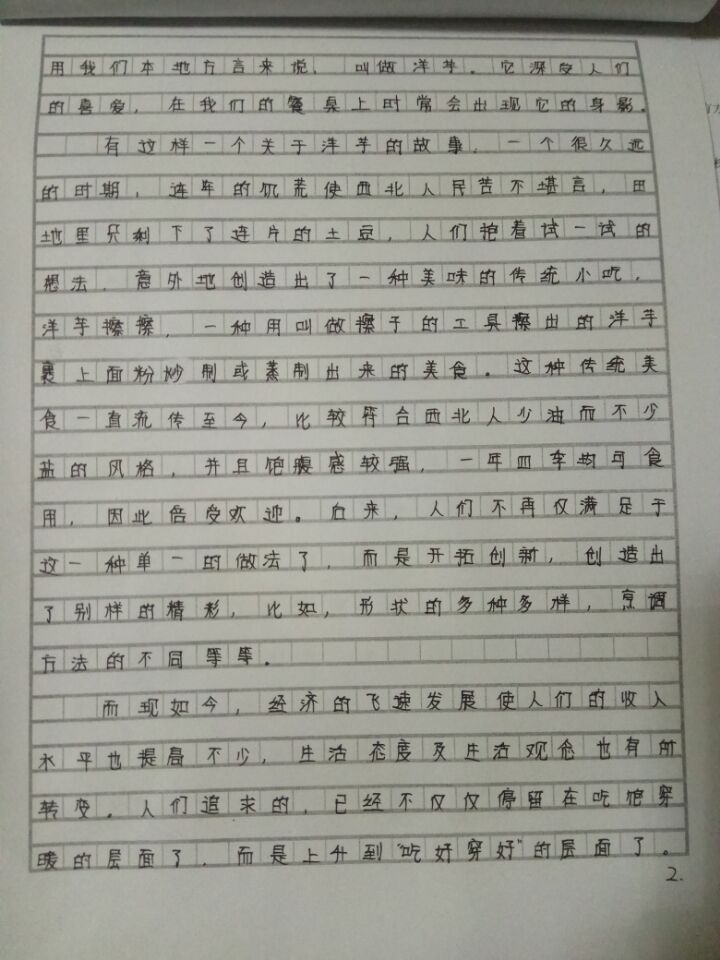 用我们本地方言来说，叫做洋芋。它深受人们
的喜爱，在我们的餐桌上时常会出现它的身影。
有这样一个关于洋芋的故事，一个很久远
的时期，连年的饥荒使西北人民苦不堪言，田
地里只剩下了连片的土豆，人们抱着试一试的
想法，意外地创造出了一种美味的传统小吃，
洋芋擦擦，一种用叫做擦子的工具擦出的洋芋
裹上面粉炒制或蒸制出来的美食。这种传统美
食一直流传至今，比较符合西北人少油而不少
盐的风格，并且饱腹感较强，一年四季均可食
用，因此倍受欢迎。后来，人们不再仅满足于
这一种单一的做法了，而是开拓创新，创造出
了别样的精彩，比如，形状的多种多样，烹调
方法的不同等等。
而现如今，经济的飞速发展使人们的收入
水平也提高不少，生活态度及生活观念也有所
转变。人们追求的，已经不仅仅停留在吃饱穿
暖的层面了，而是上升到“吃好穿好”的层面了。
2.